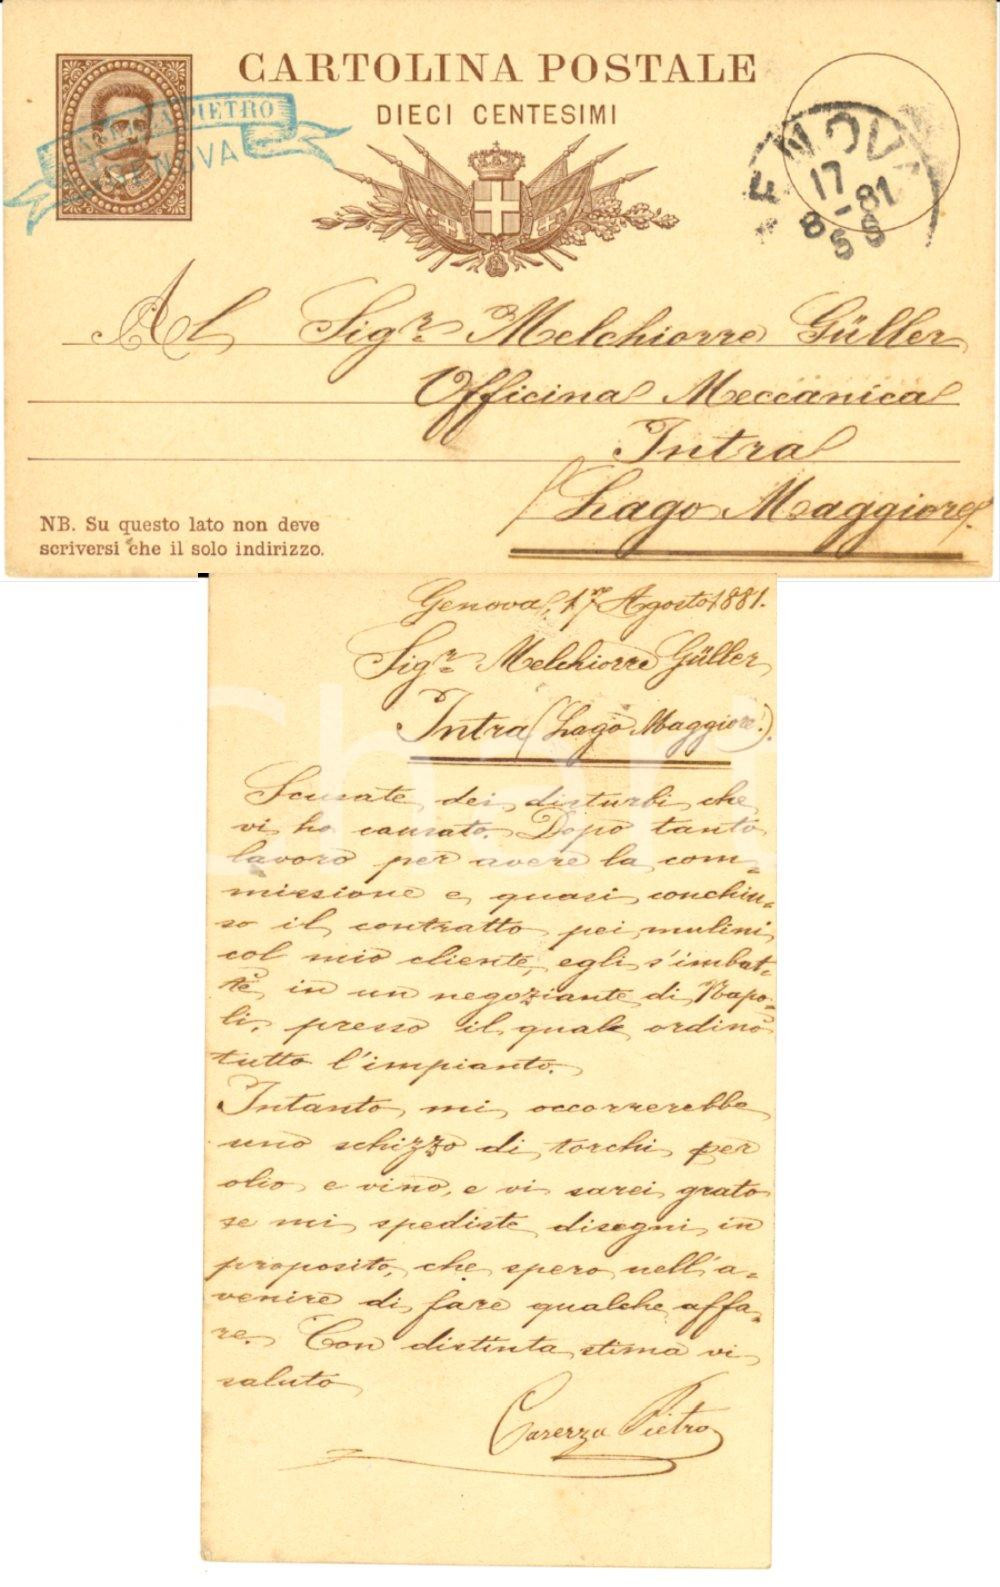 CARTOLINA POSTALE
DIECI CENTESIMI
PIETRO
GENOVA
GENOVA
17
8-81
5 S
Al Sigr. Melchiorre Güller
Officina Meccanica
Intra
(Lago Maggiore).
NB. Su questo lato non deve
scriversi che il solo indirizzo.
Genova, 17 Agosto 1881.
Sigr. Melchiorre Güller
Intra (Lago Maggiore).
Scusate dei disturbi che
vi ho causato. Dopo tanto
lavoro per avere la com=
missione e quasi conchiu=
so il contratto pei mulini
col mio cliente, egli s'imbat=
tè in un negoziante di Napo=
li, presso il quale ordinò
tutto l'impianto.
Intanto mi occorrerebbe
uno schizzo di torchi per
olio e vino, e vi sarei grato
se mi spediste disegni in
proposito, che spero nell'a=
venire di fare qualche affa=
re. Con distinta stima vi
saluto
Carezza Pietro